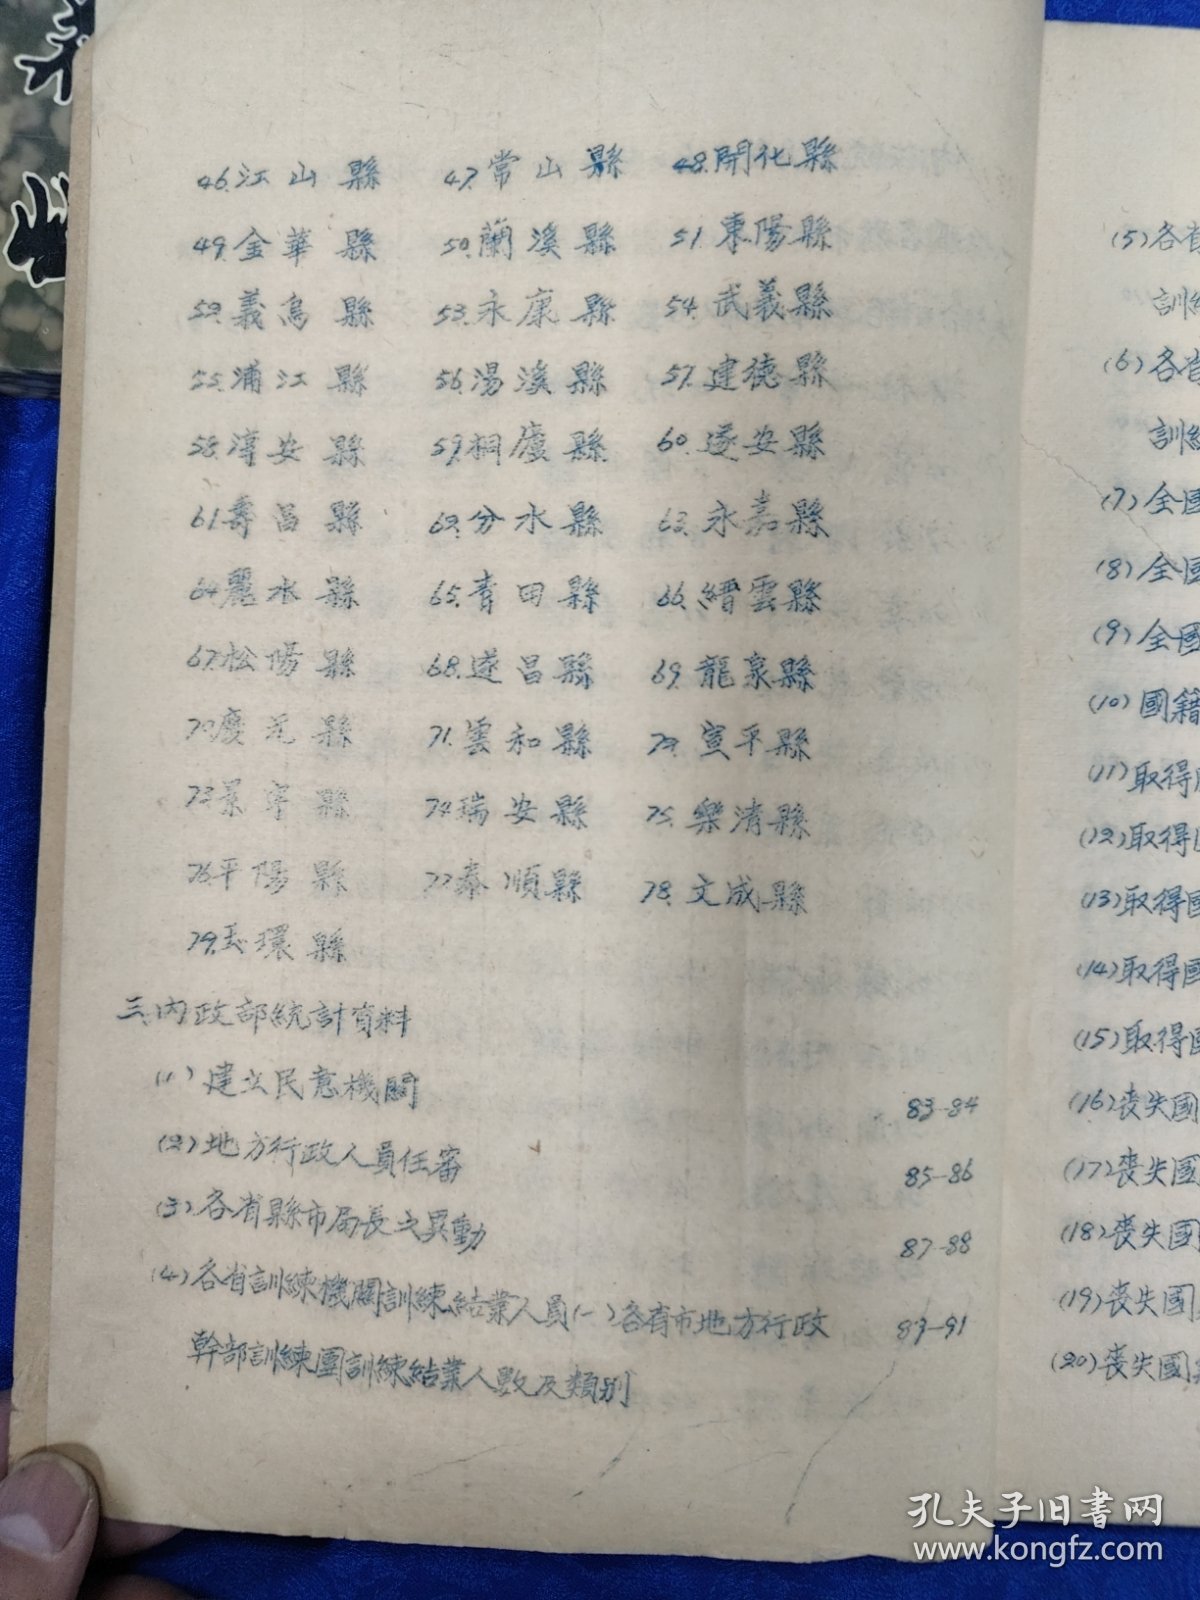 46.江山縣 47.常山縣 48.開化縣
49.金華縣 50.蘭溪縣 51.東陽縣
52.義烏縣 53.永康縣 54.武義縣
55.浦江縣 56.湯溪縣 57.建德縣
58.淳安縣 59.桐廬縣 60.遂安縣
61.壽昌縣 62.分水縣 63.永嘉縣
64.麗水縣 65.青田縣 66.縉雲縣
67.松陽縣 68.遂昌縣 69.龍泉縣
70.慶元縣 71.雲和縣 72.宣平縣
73.景寧縣 74.瑞安縣 75.樂清縣
76.平陽縣 77.泰順縣 78.文成縣
79.玉環縣
三、內政部統計資料
(1)建立民意機關 83-84
(2)地方行政人員任審 85-86
(3)各省縣市局長之異動 87-88
(4)各省訓練機關訓練結業人員(一)各省市地方行政 89-91
幹部訓練團訓練結業人數及類別
(5)各省
訓練
(6)各省
訓練
(7)全國
(8)全國
(9)全國
(10)國籍
(11)取得
(12)取得
(13)取得國
(14)取得國
(15)取得國
(16)喪失國
(17)喪失國
(18)喪失國
(19)喪失國
(20)喪失國
孔夫子旧书网
www.kongfz.com